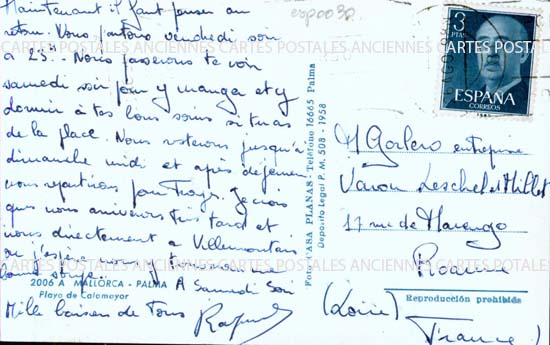 Maintenant il faut penser au
retour. Nous partons vendredi soir
à 23h. Nous passerons te voir
samedi soir pour y manger et y
dormir à tes bons soins si tu as
de la place. Nous resterons jusqu'à
dimanche midi et après déjeuner
nous repartirons pour Je crois
que nous arriverons très tard et
nous directement à
ou j'espère nous y
A Samedi Soir
Mille baisers de Tous
esp0030
3
PTAS
ESPAÑA
CORREOS
CARTES POSTALES ANCIENNES CARTES POSTALES ANCIENNES CARTES POSTALES
Foto CASA PLANAS - Teléfono 16665 Palma
Depósito Legal P. M. 508 - 1958
2006 A MALLORCA - PALMA
Playa de Calamayor
M Gorlero entreprise
Varon Leschel et Millet
17 rue de Marengo
Roanne
(Loire)
France
Reproducción prohibida